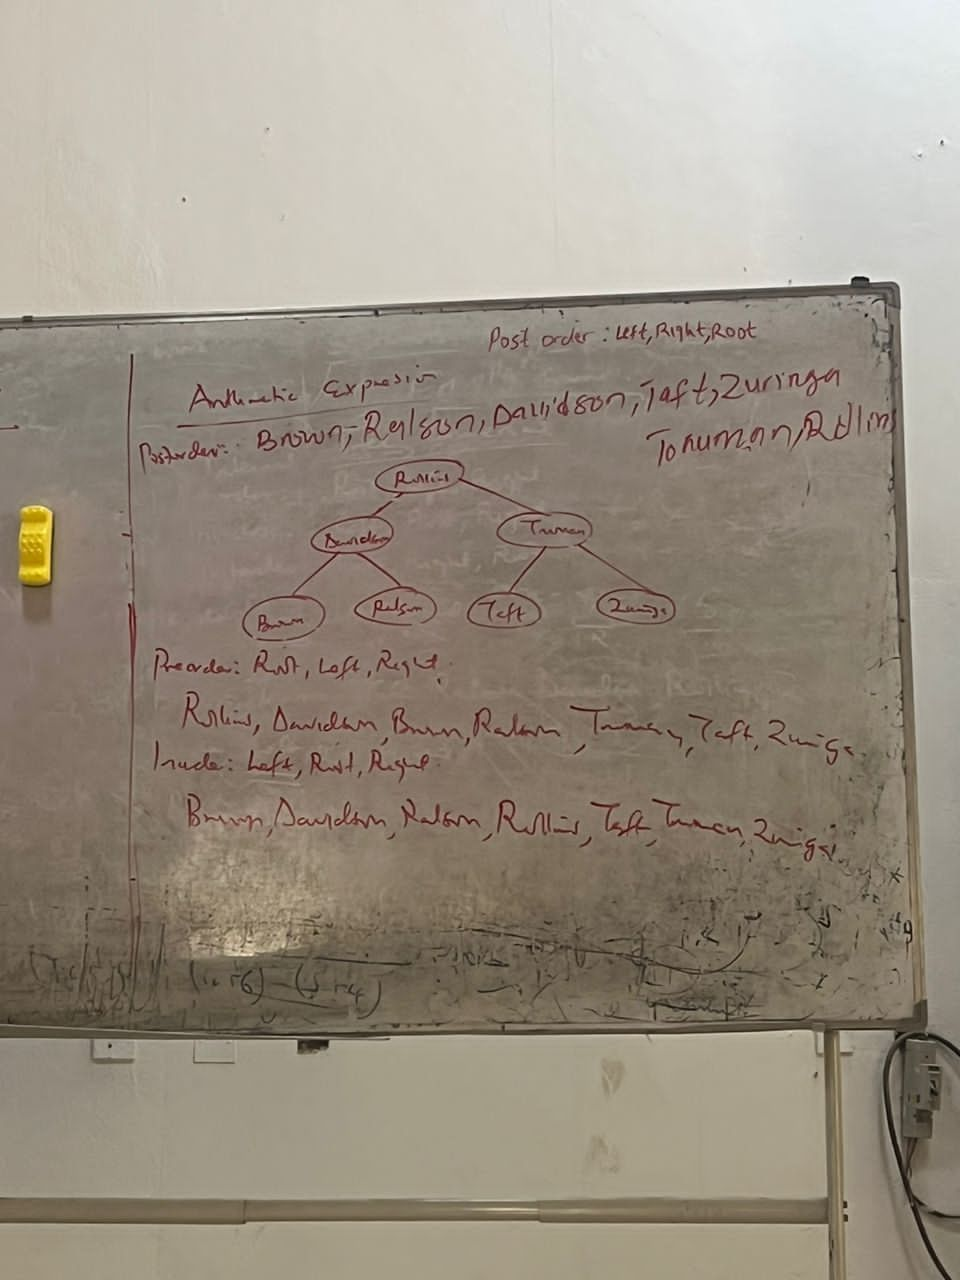 Post order : Left, Right, Root
Arithmetic Expresion
Postorder: Brown, Ralson, Davidson, Taft, Zuringa
Tonuman, Rollins
Rollins
Davidson
Truman
Brown
Ralson
Taft
Zuniga
Preorder: Root, Left, Right.
Rollins, Davidson, Brown, Ralson, Truman, Taft, Zuniga
Inorder: Left, Root, Right.
Brown, Davidson, Ralson, Rollins, Taft, Truman, Zuniga